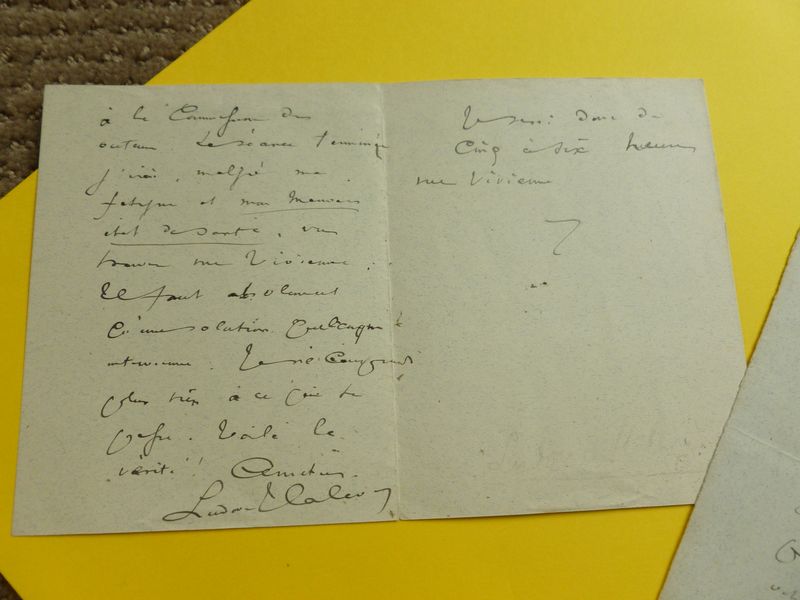 à la Commission des
auteurs. La séance terminée
j'irai, malgré ma
fatigue et mon mauvais
état de santé, vous
trouver rue Vivienne.
Il faut absolument
qu'une solution quelconque
intervienne. Je ne comprends
plus rien à ce qui se
passe. Voilà la
vérité! Amitiés.
Ludovic Halévy
Je serai donc de
cinq à six heures
rue Vivienne